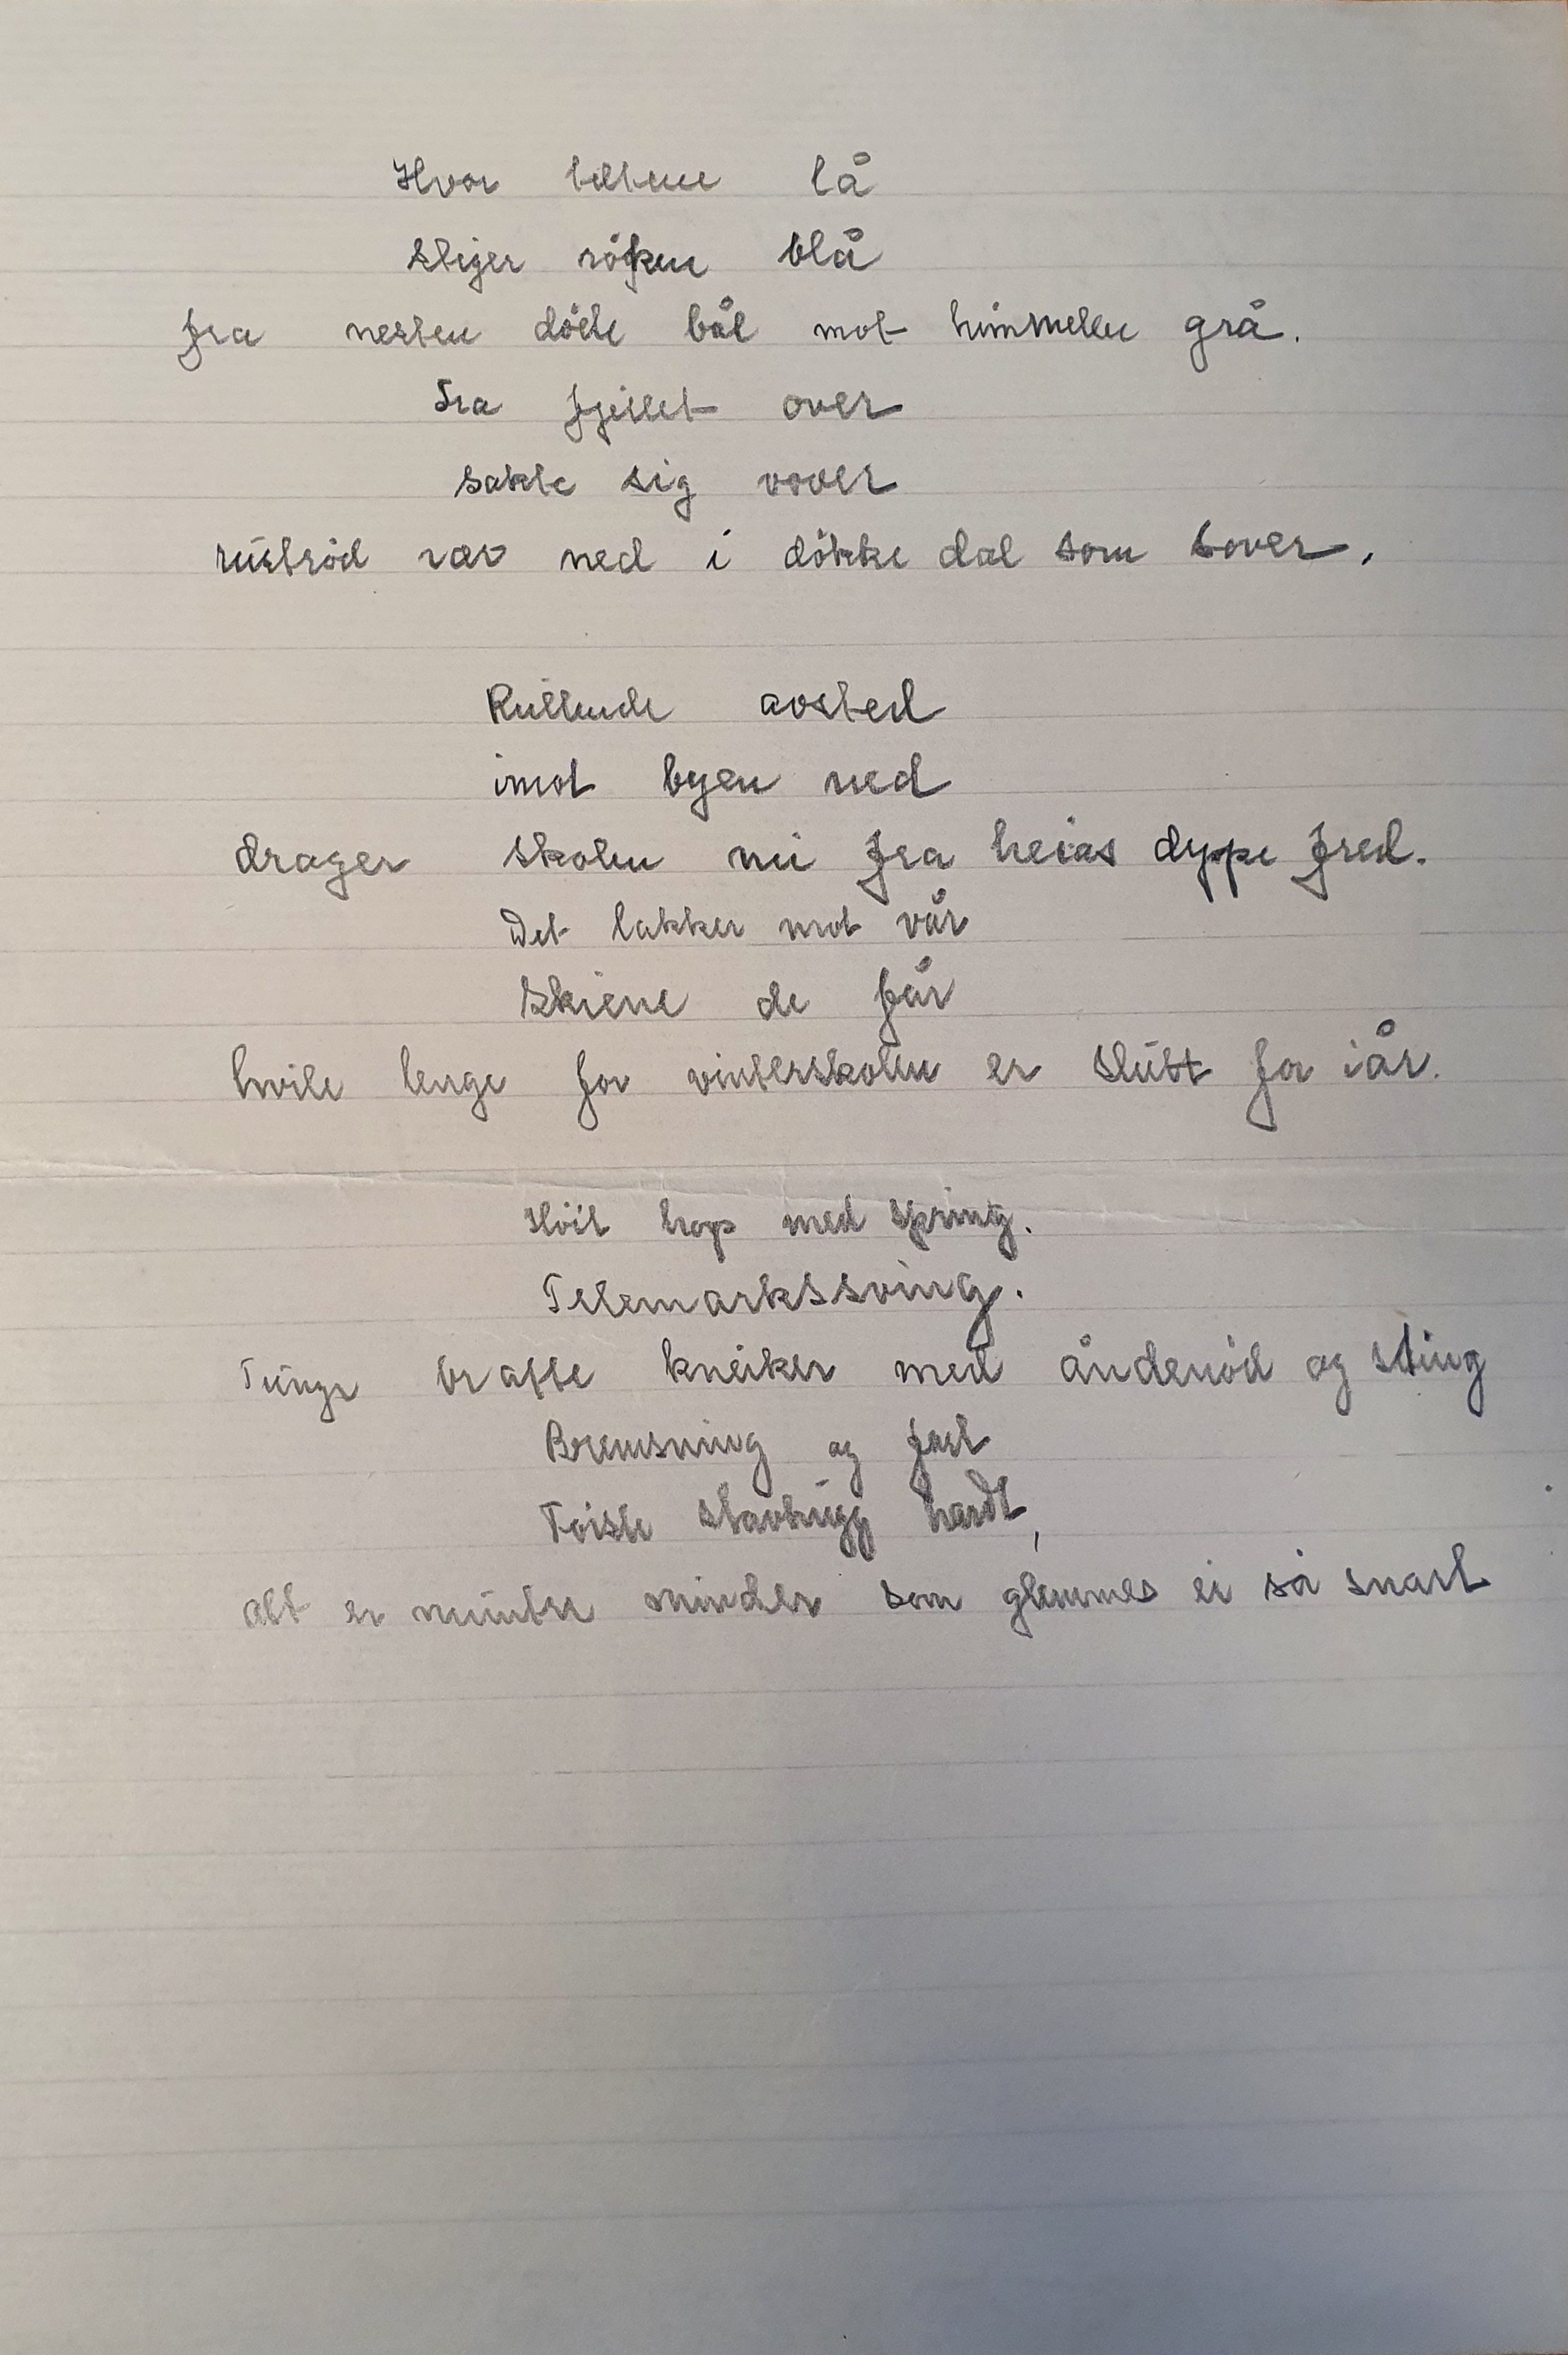 Hvor teltene lå
stiger röken blå
fra nesten döde bål mot himmelen grå.
Fra fjellet over
sakte sig vover
ruströd rev ned i dökke dal som sover.
Rullende avsted
imot byen ned
drager skolen nu fra heias dype fred.
Det lakker mot vår
Skiene de får
hvile lenge for vinterskolen er slutt for iår.
Höit hop med spring.
Telemarkssving.
Tunge bratte kneiker med åndenöd og sting
Bremsning og fart
Föiste stavhugg hardt,
alt er muntre minder som glemmes ei så snart